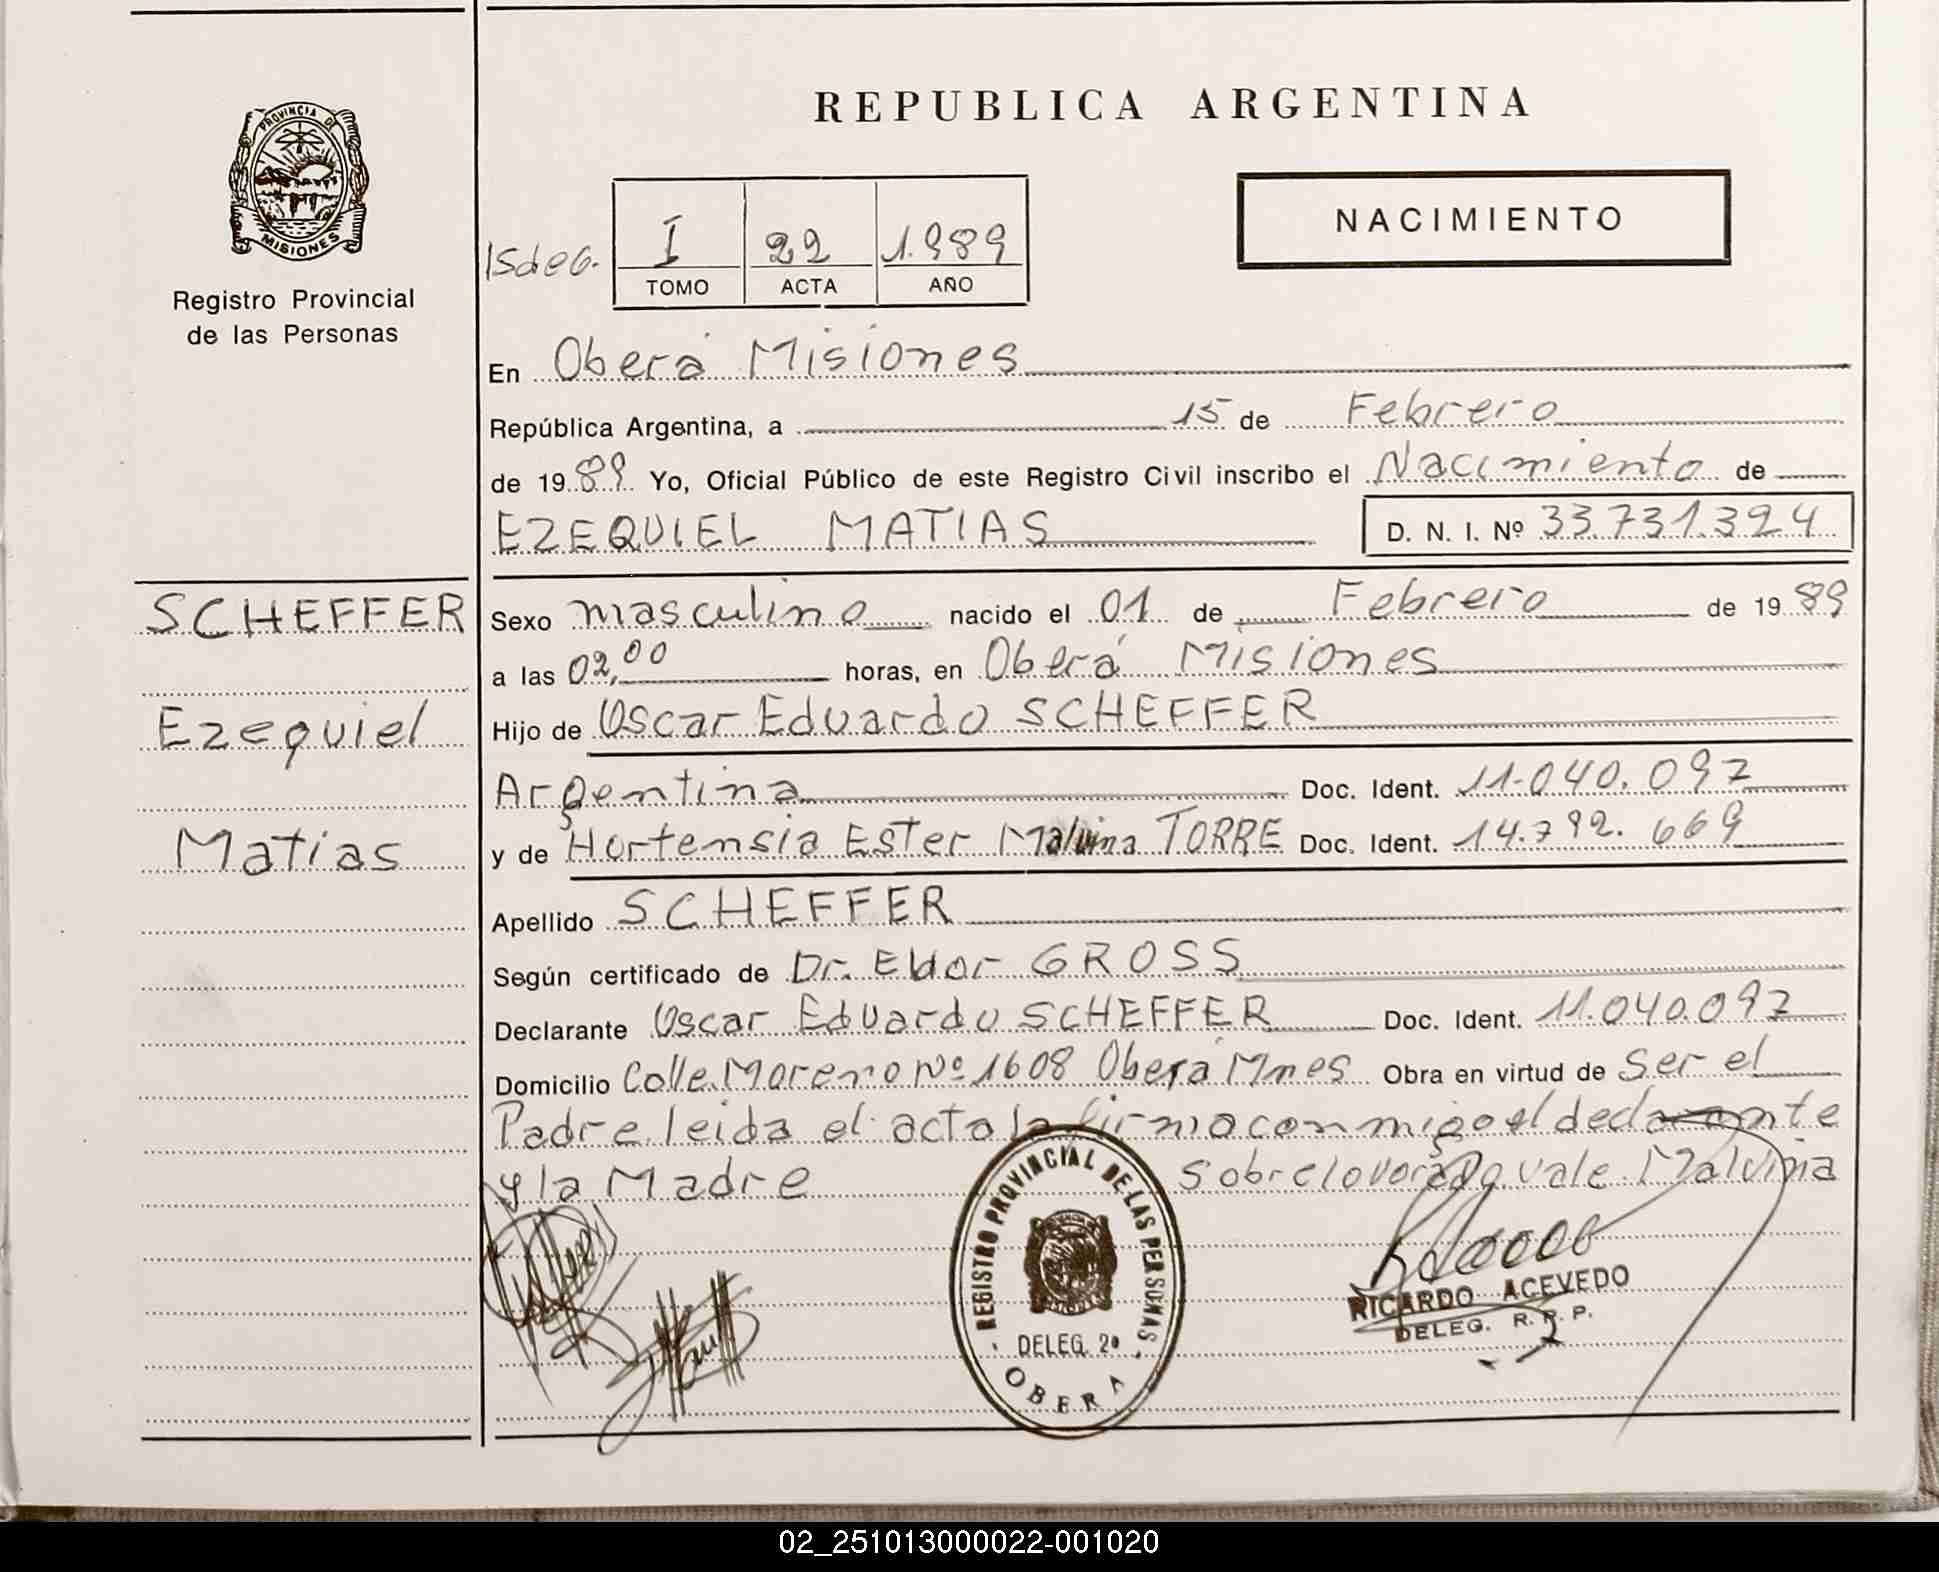 REPUBLICA ARGENTINA
PROVINCIA DE
MISIONES
Registro Provincial
de las Personas
NACIMIENTO
I 22 1.989
TOMO ACTA AÑO
En Oberá Misiones
República Argentina, a 15 de Febrero
de 1989 Yo, Oficial Público de este Registro Civil inscribo el Nacimiento de
EZEQUIEL MATIAS D. N. I. Nº 33.731.394
SCHEFFER
Ezequiel
Matias
Sexo masculino nacido el 01 de Febrero de 1989
a las 02,00 horas, en Oberá Misiones
Hijo de Oscar Eduardo SCHEFFER
Argentina Doc. Ident. 11.040.097
y de Hortensia Ester Malvina TORRE Doc. Ident. 14.792.669
Apellido SCHEFFER
Según certificado de Dr. Eldor GROSS
Declarante Oscar Eduardo SCHEFFER Doc. Ident. 11.040.097
Domicilio Calle Moreno Nº 1608 Oberá Mnes Obra en virtud de Ser el
Padre leida el acta la firma conmigo el declarante
y la Madre Sobre lo vorado vale Malvina
REGISTRO PROVINCIAL DE LAS PERSONAS
DELEG. 2º
OBERA
RICARDO ACEVEDO
DELEG. R. P. P.
02_251013000022-001020